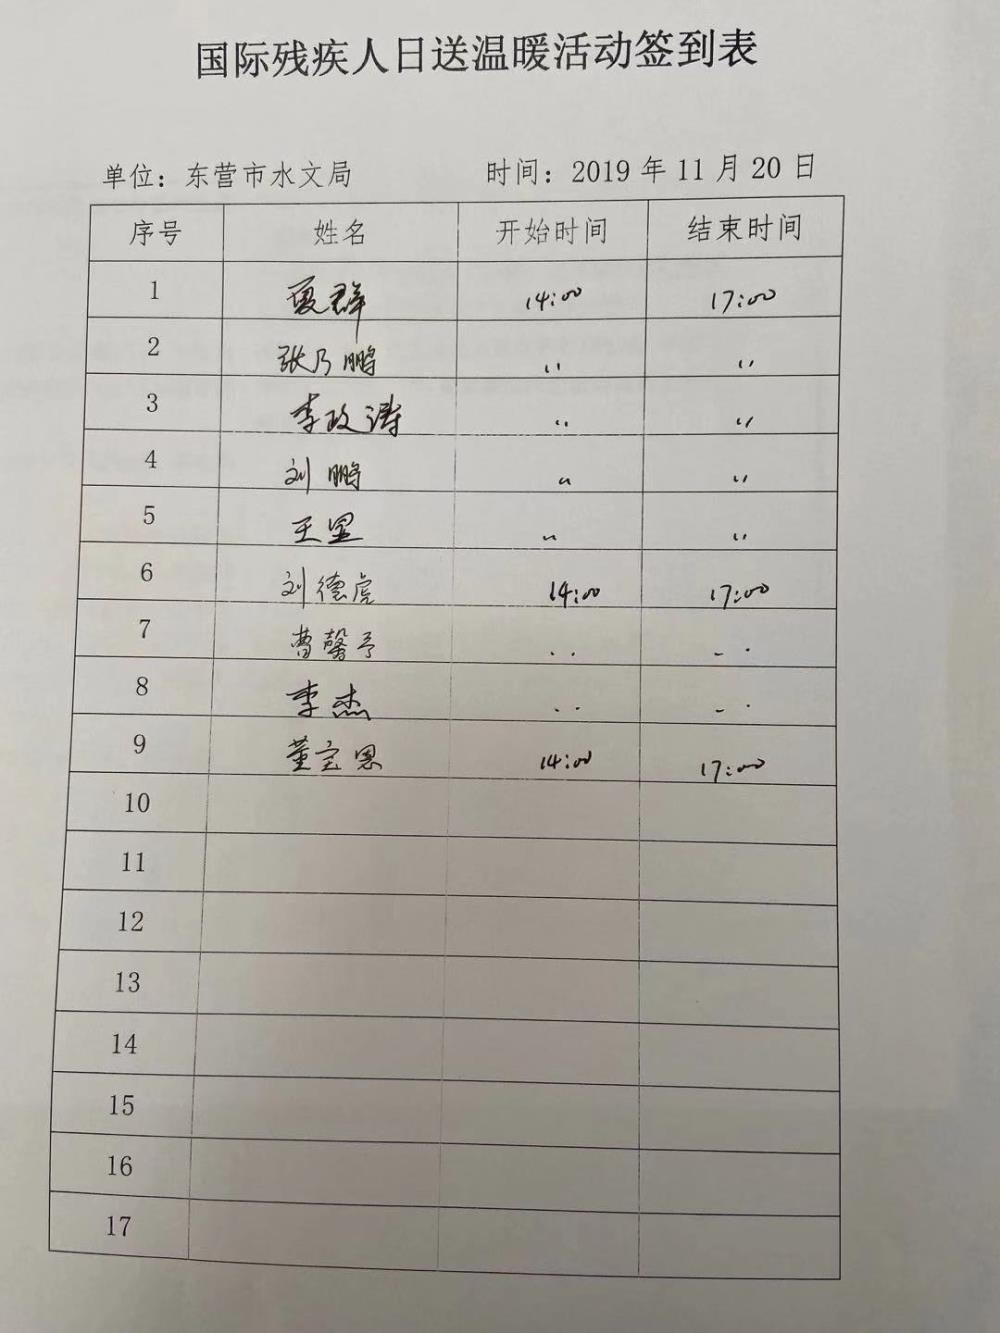 国际残疾人日送温暖活动签到表
单位：东营市水文局 时间：2019 年 11 月 20 日
序号 姓名 开始时间 结束时间
1 夏群 14:00 17:00
2 张乃鹏 〃 〃
3 李政涛 〃 〃
4 刘鹏 〃 〃
5 王昱 〃 〃
6 刘德虎 14:00 17:00
7 曹馨予 〃 〃
8 李杰 〃 〃
9 董宝恩 14:00 17:00
10
11
12
13
14
15
16
17